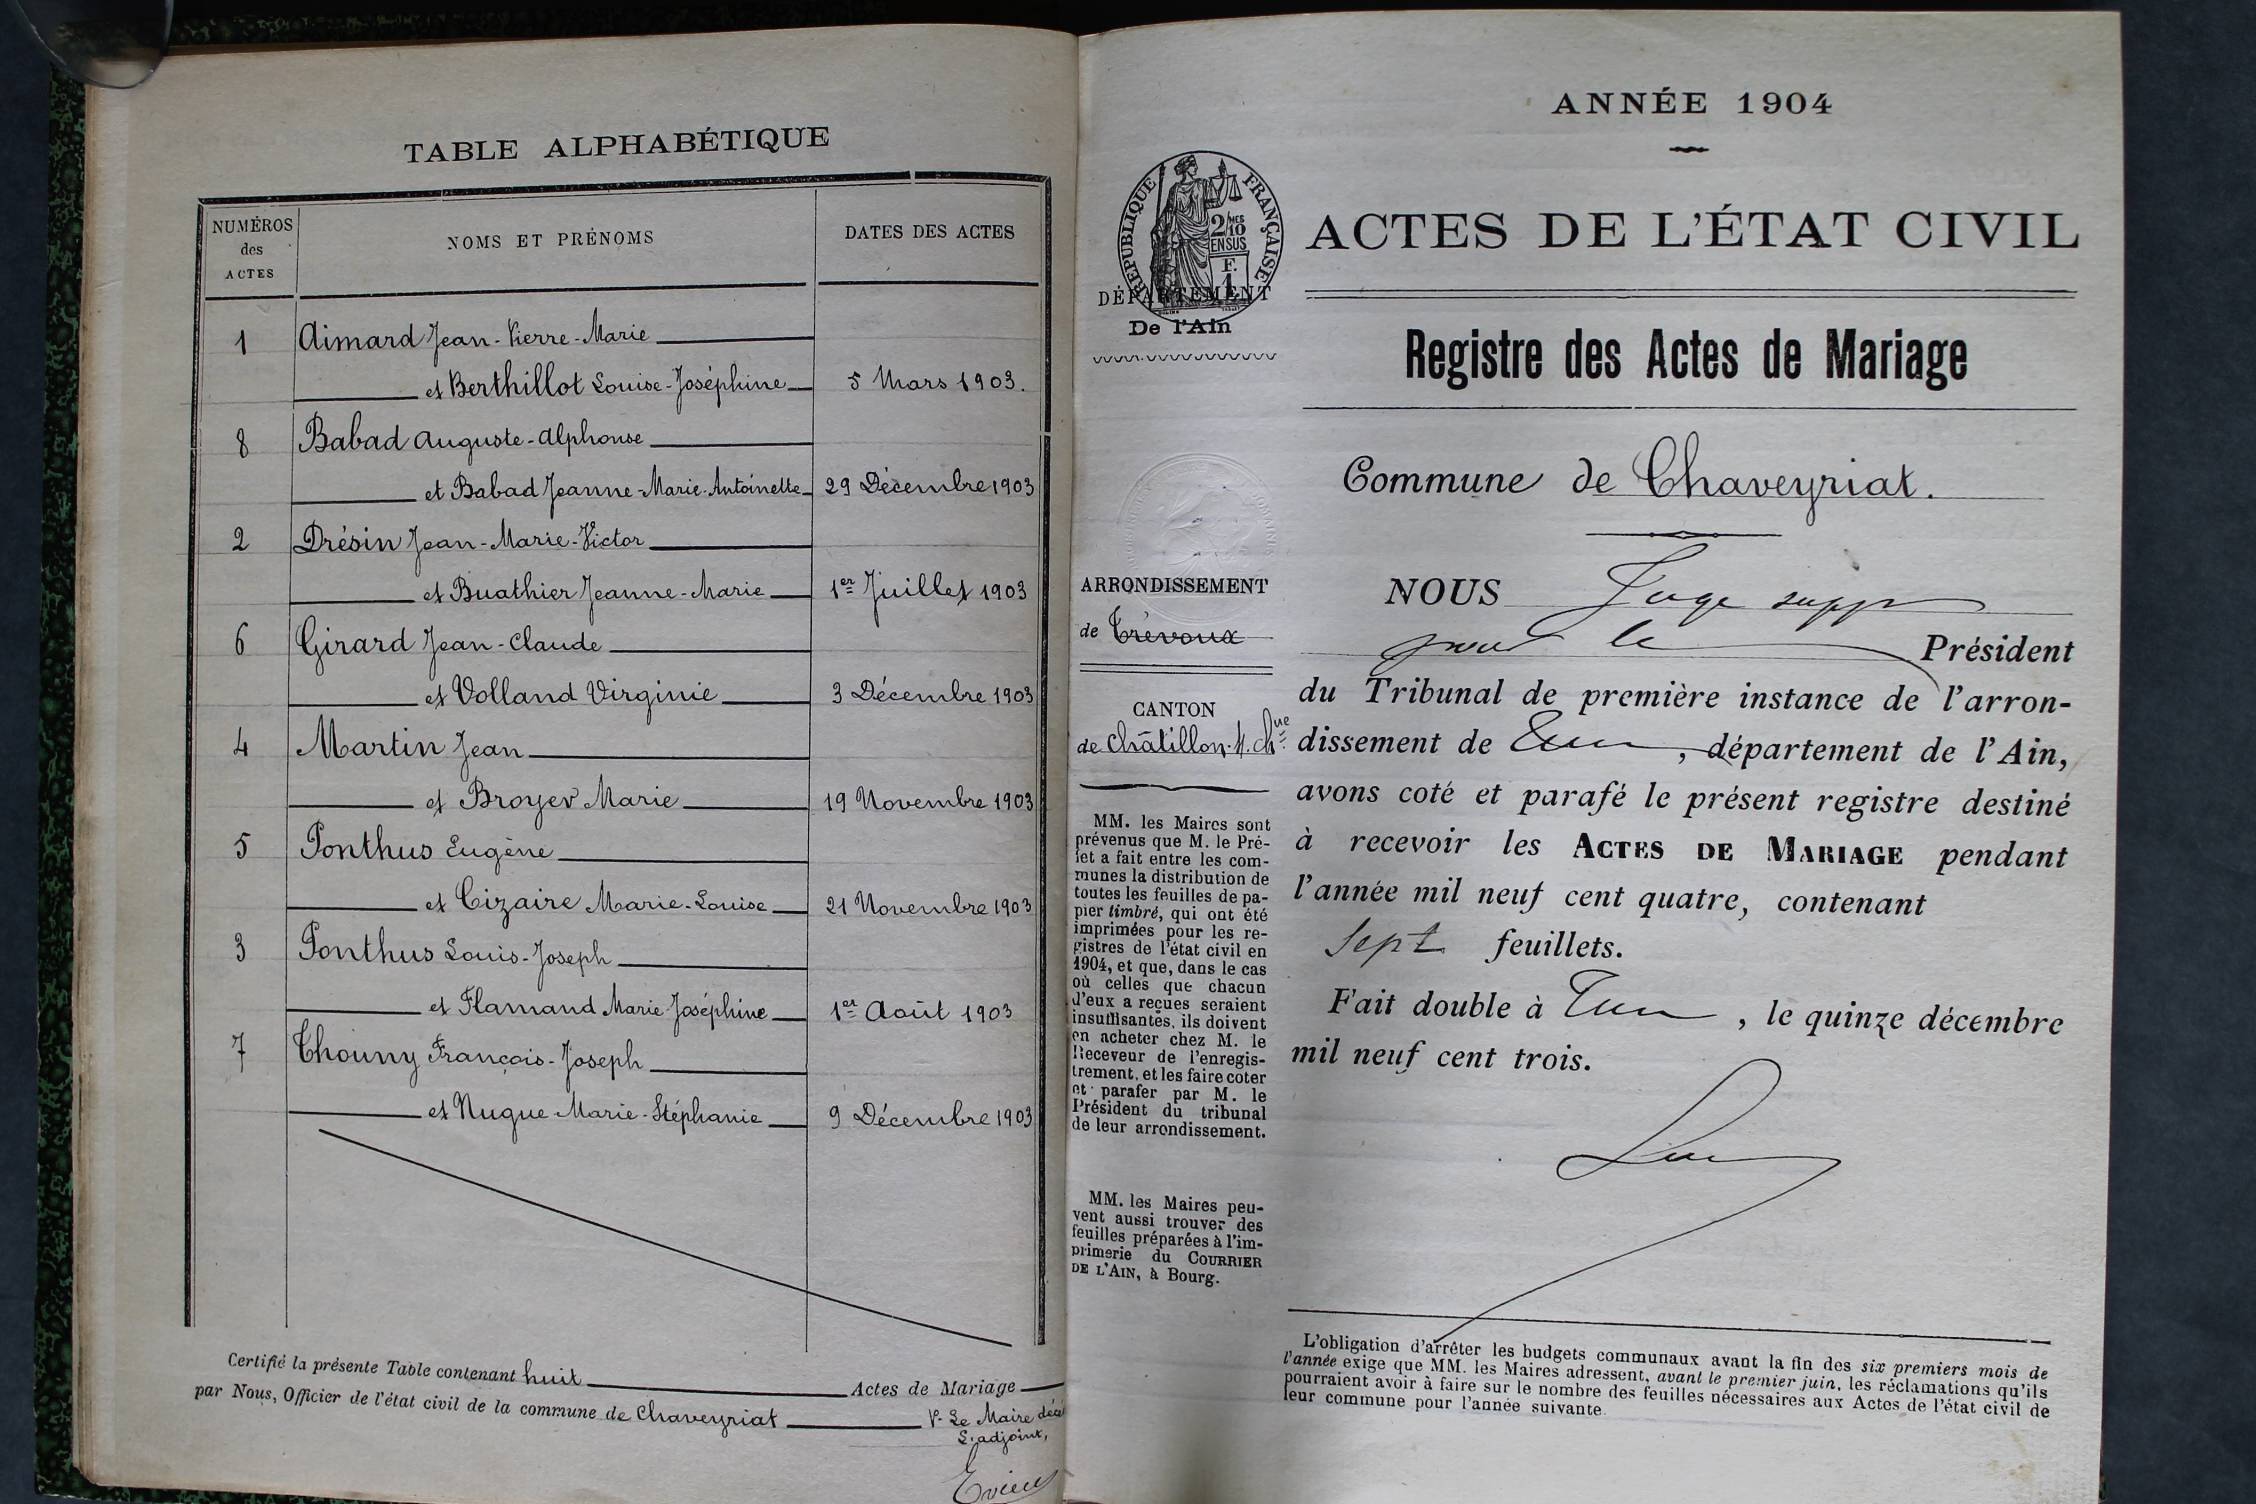 TABLE ALPHABÉTIQUE
NUMÉROS des ACTES
NOMS ET PRÉNOMS
DATES DES ACTES
1 Aimard Jean-Pierre-Marie
et Berthillot Louise-Joséphine 5 Mars 1903.
8 Babad Auguste-Alphonse
et Babad Jeanne-Marie-Antoinette 29 Décembre 1903
2 Drésin Jean-Marie-Victor
et Buathier Jeanne-Marie 1er Juillet 1903
6 Girard Jean-Claude
et Volland Virginie 3 Décembre 1903
4 Martin Jean
et Broyer Marie 19 Novembre 1903
5 Ponthus Eugène
et Cizaire Marie-Louise 21 Novembre 1903
3 Ponthus Louis-Joseph
et Flamand Marie-Joséphine 1er Août 1903
7 Thouny François-Joseph
et Nugue Marie-Stéphanie 9 Décembre 1903
Certifié la présente Table contenant huit Actes de Mariage
par Nous, Officier de l'état civil de la commune de Chaveyriat Pr Le Maire
L'adjoint,
ANNÉE 1904
RÉPUBLIQUE FRANÇAISE
2/10 MES
EN SUS
F.
1
ACTES DE L'ÉTAT CIVIL
DÉPARTEMENT
De l'Ain
Registre des Actes de Mariage
Commune de Chaveyriat.
ARRONDISSEMENT
de Trévoux
CANTON
de Châtillon-s.-Chne
MM. les Maires sont
prévenus que M. le Pré-
fet a fait entre les com-
munes la distribution de
toutes les feuilles de pa-
pier timbré, qui ont été
imprimées pour les re-
gistres de l'état civil en
1904, et que, dans le cas
où celles que chacun
d'eux a reçues seraient
insuffisantes, ils doivent
en acheter chez M. le
Receveur de l'enregis-
trement, et les faire coter
et parafer par M. le
Président du tribunal
de leur arrondissement.
MM. les Maires peu-
vent aussi trouver des
feuilles préparées à l'im-
primerie du COURRIER
DE L'AIN, à Bourg.
NOUS Juge supp
pour le Président
du Tribunal de première instance de l'arron-
dissement de , département de l'Ain,
avons coté et parafé le présent registre destiné
à recevoir les ACTES DE MARIAGE pendant
l'année mil neuf cent quatre, contenant
sept feuillets.
Fait double à , le quinze décembre
mil neuf cent trois.
L'obligation d'arrêter les budgets communaux avant la fin des six premiers mois de
l'année exige que MM. les Maires adressent, avant le premier juin, les réclamations qu'ils
pourraient avoir à faire sur le nombre des feuilles nécessaires aux Actes de l'état civil de
leur commune pour l'année suivante.